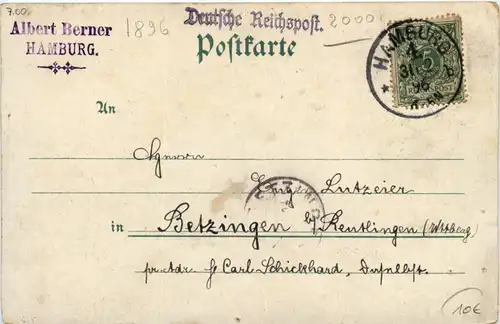 7.00
Albert Berner
HAMBURG.
1896
Deutsche Reichspost.
2000
Postkarte
HAMBURG
4
31
96
5
An
Herrn
Eugen Lutzeier
in Betzingen b/ Reutlingen (Wttbg)
pr. Adr. H. Carl Schickhard, daselbst.
10€